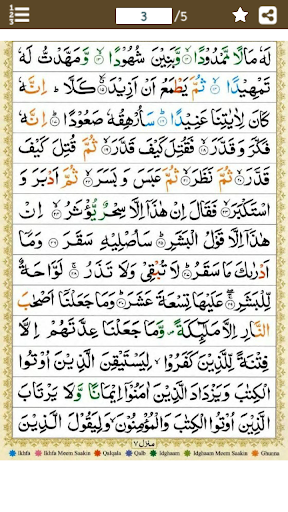 3 /5
لَهٗ مَالًا مَّمْدُوْدًا ۙ﴿۱۲﴾ وَّبَنِيْنَ شُهُوْدًا ۙ﴿۱۳﴾ وَّمَهَّدْتُّ لَهٗ
تَمْهِيْدًا ۙ﴿۱۴﴾ ثُمَّ يَطْمَعُ اَنْ اَزِيْدَ ۙ﴿۱۵﴾ كَلَّا ؕ اِنَّهٗ
كَانَ لِاٰيٰتِنَا عَنِيْدًا ؕ﴿۱۶﴾ سَاُرْهِقُهٗ صَعُوْدًا ؕ﴿۱۷﴾ اِنَّهٗ
فَكَّرَ وَقَدَّرَ ۙ﴿۱۸﴾ فَقُتِلَ كَيْفَ قَدَّرَ ۙ﴿۱۹﴾ ثُمَّ قُتِلَ كَيْفَ
قَدَّرَ ۙ﴿۲۰﴾ ثُمَّ نَظَرَ ۙ﴿۲۱﴾ ثُمَّ عَبَسَ وَبَسَرَ ۙ﴿۲۲﴾ ثُمَّ اَدْبَرَ وَ
اسْتَكْبَرَ ۙ﴿۲۳﴾ فَقَالَ اِنْ هٰذَاۤ اِلَّا سِحْرٌ يُّؤْثَرُ ۙ﴿۲۴﴾ اِنْ
هٰذَاۤ اِلَّا قَوْلُ الْبَشَرِ ؕ﴿۲۵﴾ سَاُصْلِيْهِ سَقَرَ ﴿۲۶﴾ وَمَاۤ
اَدْرٰىكَ مَا سَقَرُ ؕ﴿۲۷﴾ لَا تُبْقِيْ وَلَا تَذَرُ ۚ﴿۲۸﴾ لَوَّاحَةٌ
لِّلْبَشَرِ ۚ﴿۲۹﴾ عَلَيْهَا تِسْعَةَ عَشَرَ ؕ﴿۳۰﴾ وَمَا جَعَلْنَاۤ اَصْحٰبَ
النَّارِ اِلَّا مَلٰٓئِكَةً ۪ وَّمَا جَعَلْنَا عِدَّتَهُمْ اِلَّا
فِتْنَةً لِّلَّذِيْنَ كَفَرُوْا ۙ لِيَسْتَيْقِنَ الَّذِيْنَ اُوْتُوا
الْكِتٰبَ وَيَزْدَادَ الَّذِيْنَ اٰمَنُوْۤا اِيْمَانًا وَّلَا يَرْتَابَ
الَّذِيْنَ اُوْتُوا الْكِتٰبَ وَالْمُؤْمِنُوْنَ ۙ وَلِيَقُوْلَ الَّذِيْنَ
منزل ۷
Ikhfa Ikhfa Meem Saakin Qalqala Qalb Idghaam Idghaam Meem Saakin Ghunna